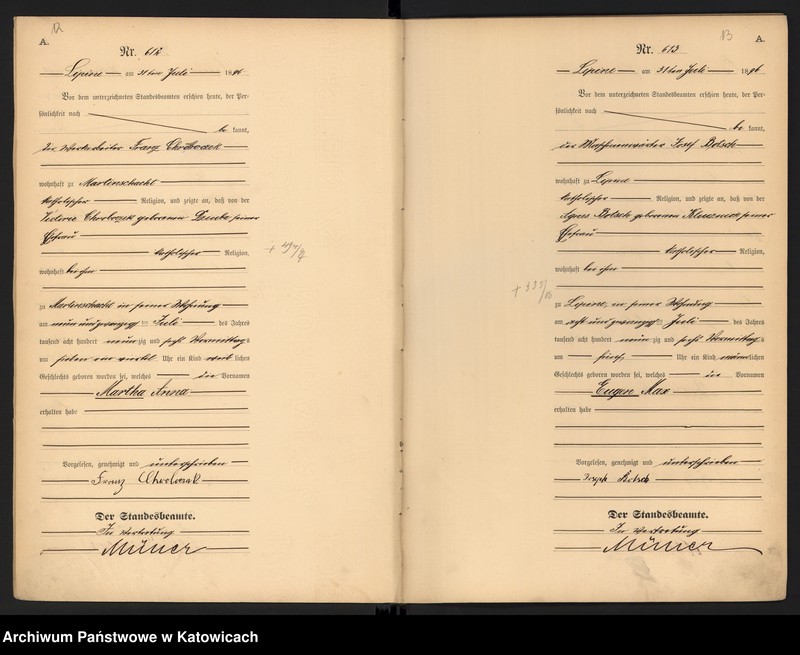 12
A.
Nr. 612
Lipine am 31ten Juli 1896
Vor dem unterzeichneten Standesbeamten erschien heute, der Per-
sönlichkeit nach
be kannt,
der Franz
wohnhaft zu Martinschacht
katholischer Religion, und zeigte an, daß von der
geborenen seiner
Ehefrau
katholischer Religion,
wohnhaft bei ihm
zu Martinschacht in seiner Wohnung
am neun und zwanzigten Juli des Jahres
tausend acht hundert neun zig und sechs Vormittags
um sieben ein viertel Uhr ein Kind weib lichen
Geschlechts geboren worden sei, welches die Vornamen
Martha Anna
erhalten habe
Vorgelesen, genehmigt und unterschrieben
Franz
Der Standesbeamte.
In Vertretung
13
A.
Nr. 613
Lipine am 31ten Juli 1896
Vor dem unterzeichneten Standesbeamten erschien heute, der Per-
sönlichkeit nach
be kannt,
der Maschinenwärter Josef Botsch
wohnhaft zu Lipine
katholischer Religion, und zeigte an, daß von der
Agnes Botsch geborenen seiner
Ehefrau
katholischer Religion,
wohnhaft bei ihm
zu Lipine, in seiner Wohnung
am acht und zwanzigten Juli des Jahres
tausend acht hundert neun zig und sechs Vormittags
um Uhr ein Kind männlichen
Geschlechts geboren worden sei, welches die Vornamen
Eugen Max
erhalten habe
Vorgelesen, genehmigt und unterschrieben
Botsch
Der Standesbeamte.
In Vertretung
Archiwum Państwowe w Katowicach